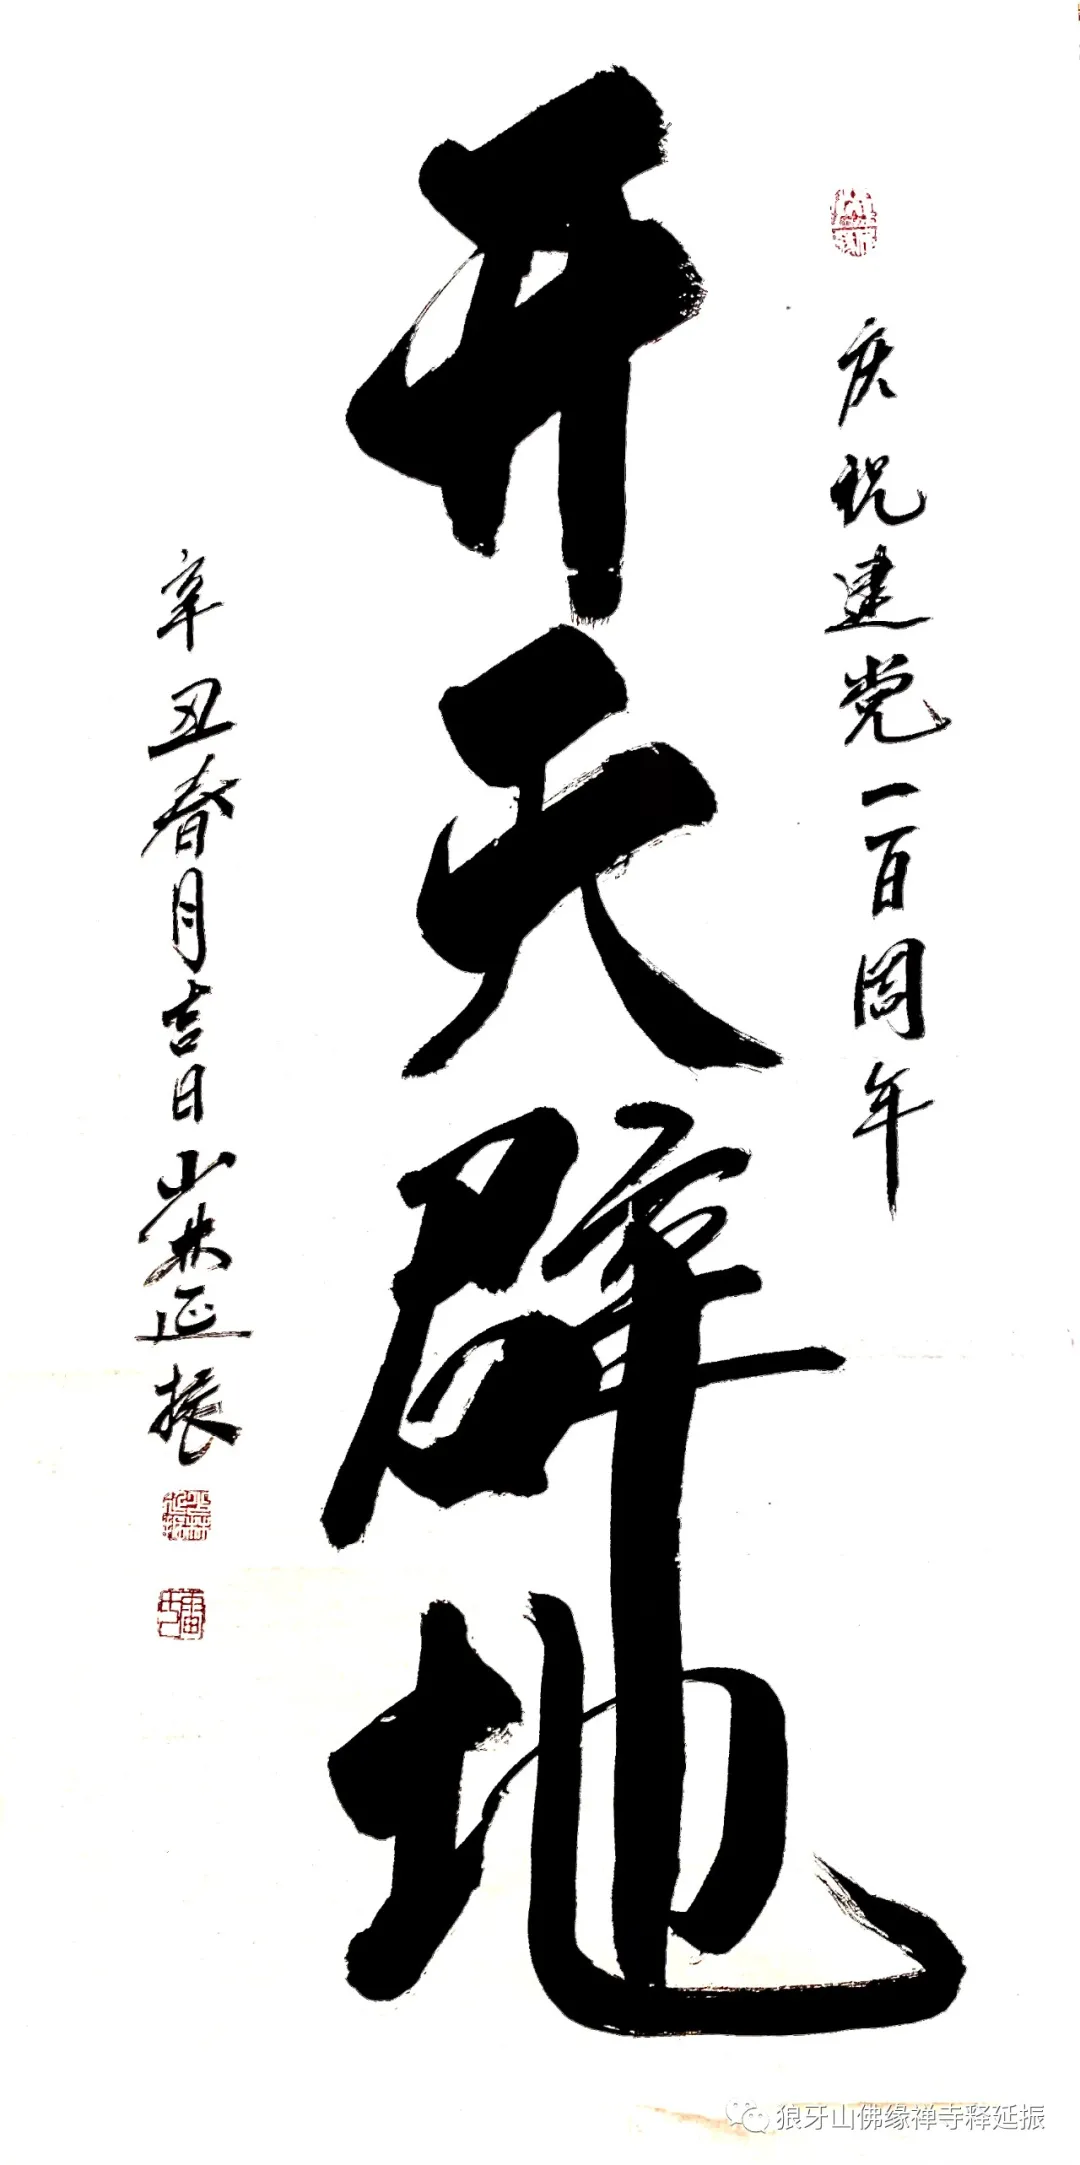 庆祝建党一百周年
开天辟地
辛丑春月吉日少林延振
狼牙山佛缘禅寺释延振